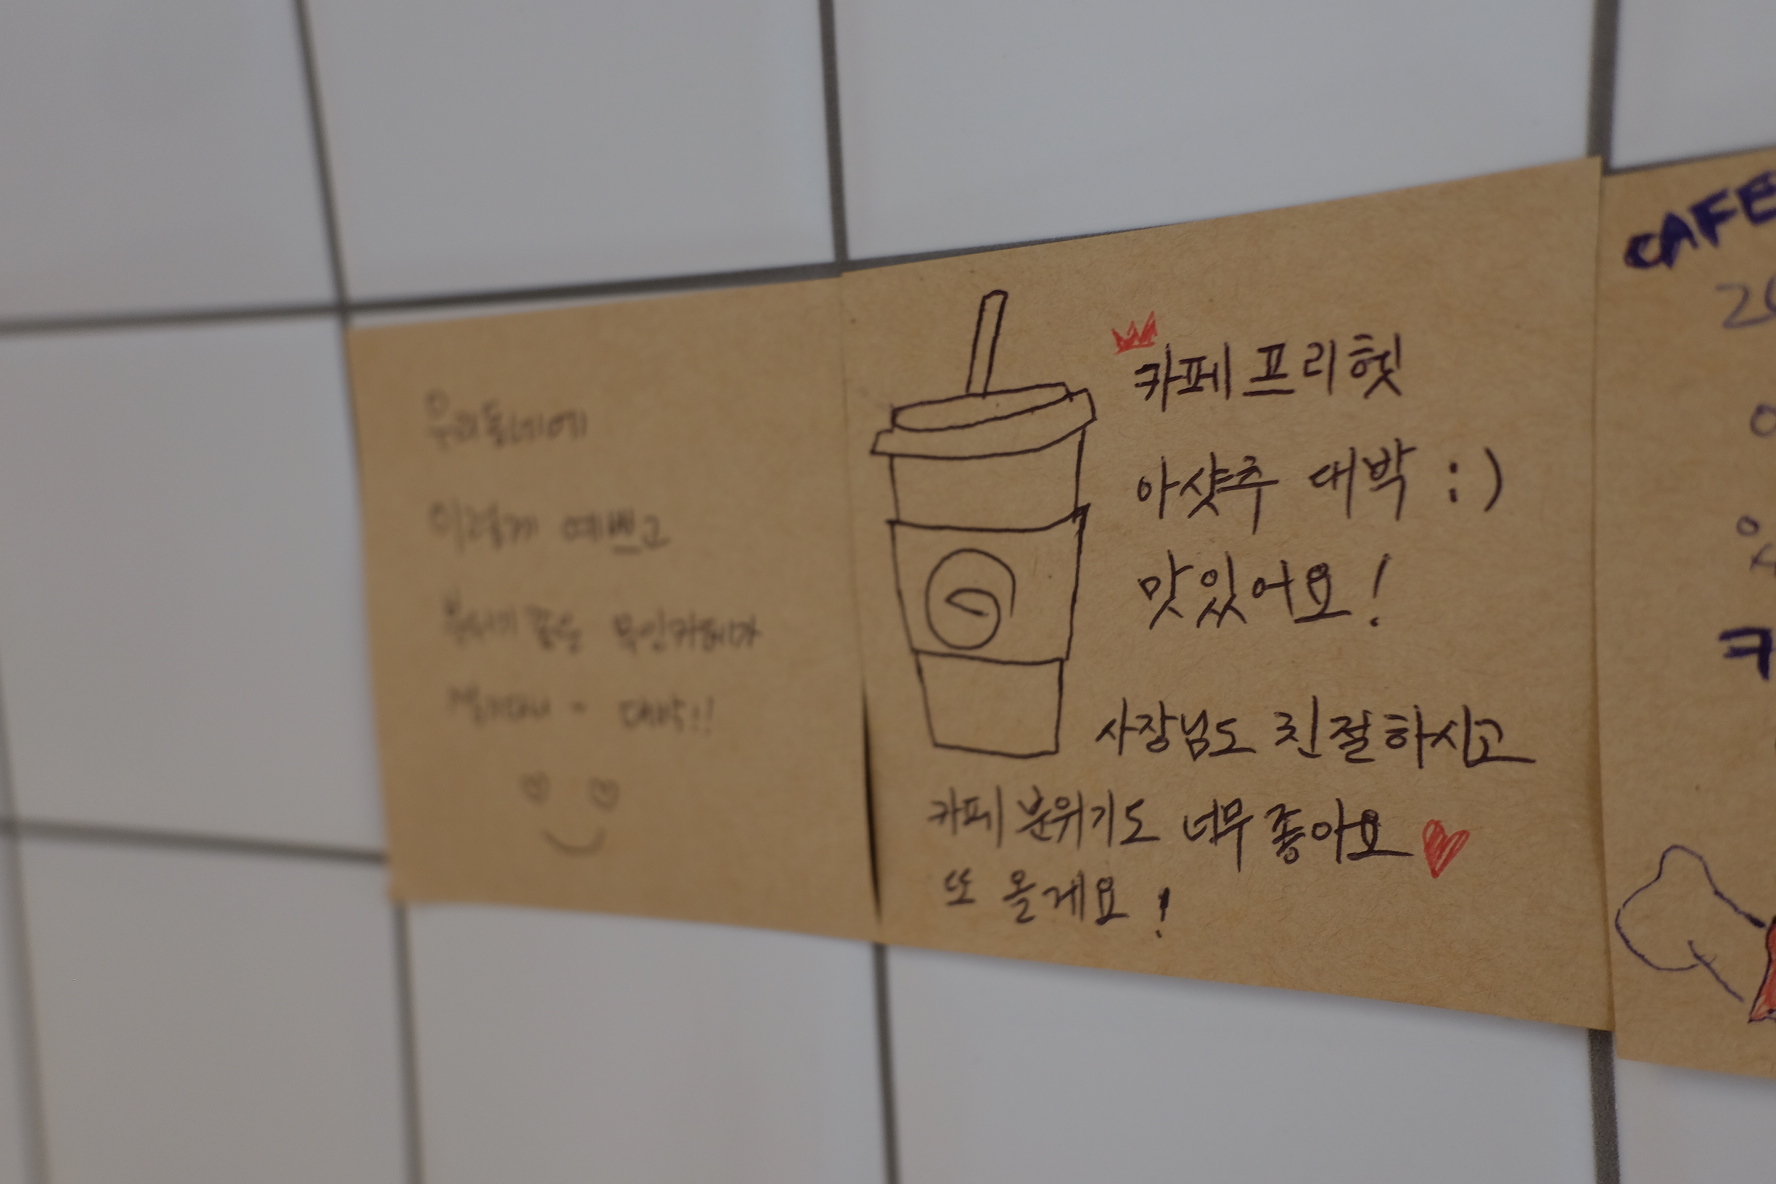 우리동네에
이렇게 예쁘고
분위기 좋은 무인카페가
대박!!
카페프리헷
아샷추 대박 :)
맛있어요!
사장님도 친절하시고
카페 분위기도 너무 좋아요
또 올게요!
CAFE